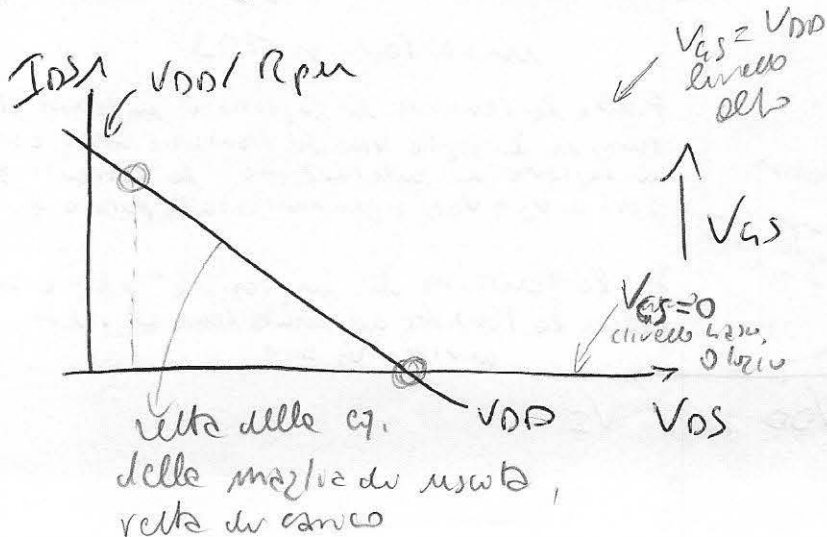 IDS
VDD/Rpu
VGS = VDD
livello
alto
VGS
VGS=0
livello basso,
0 logico
VDD
VDS
retta della eq.
della maglia di uscita,
retta di carico